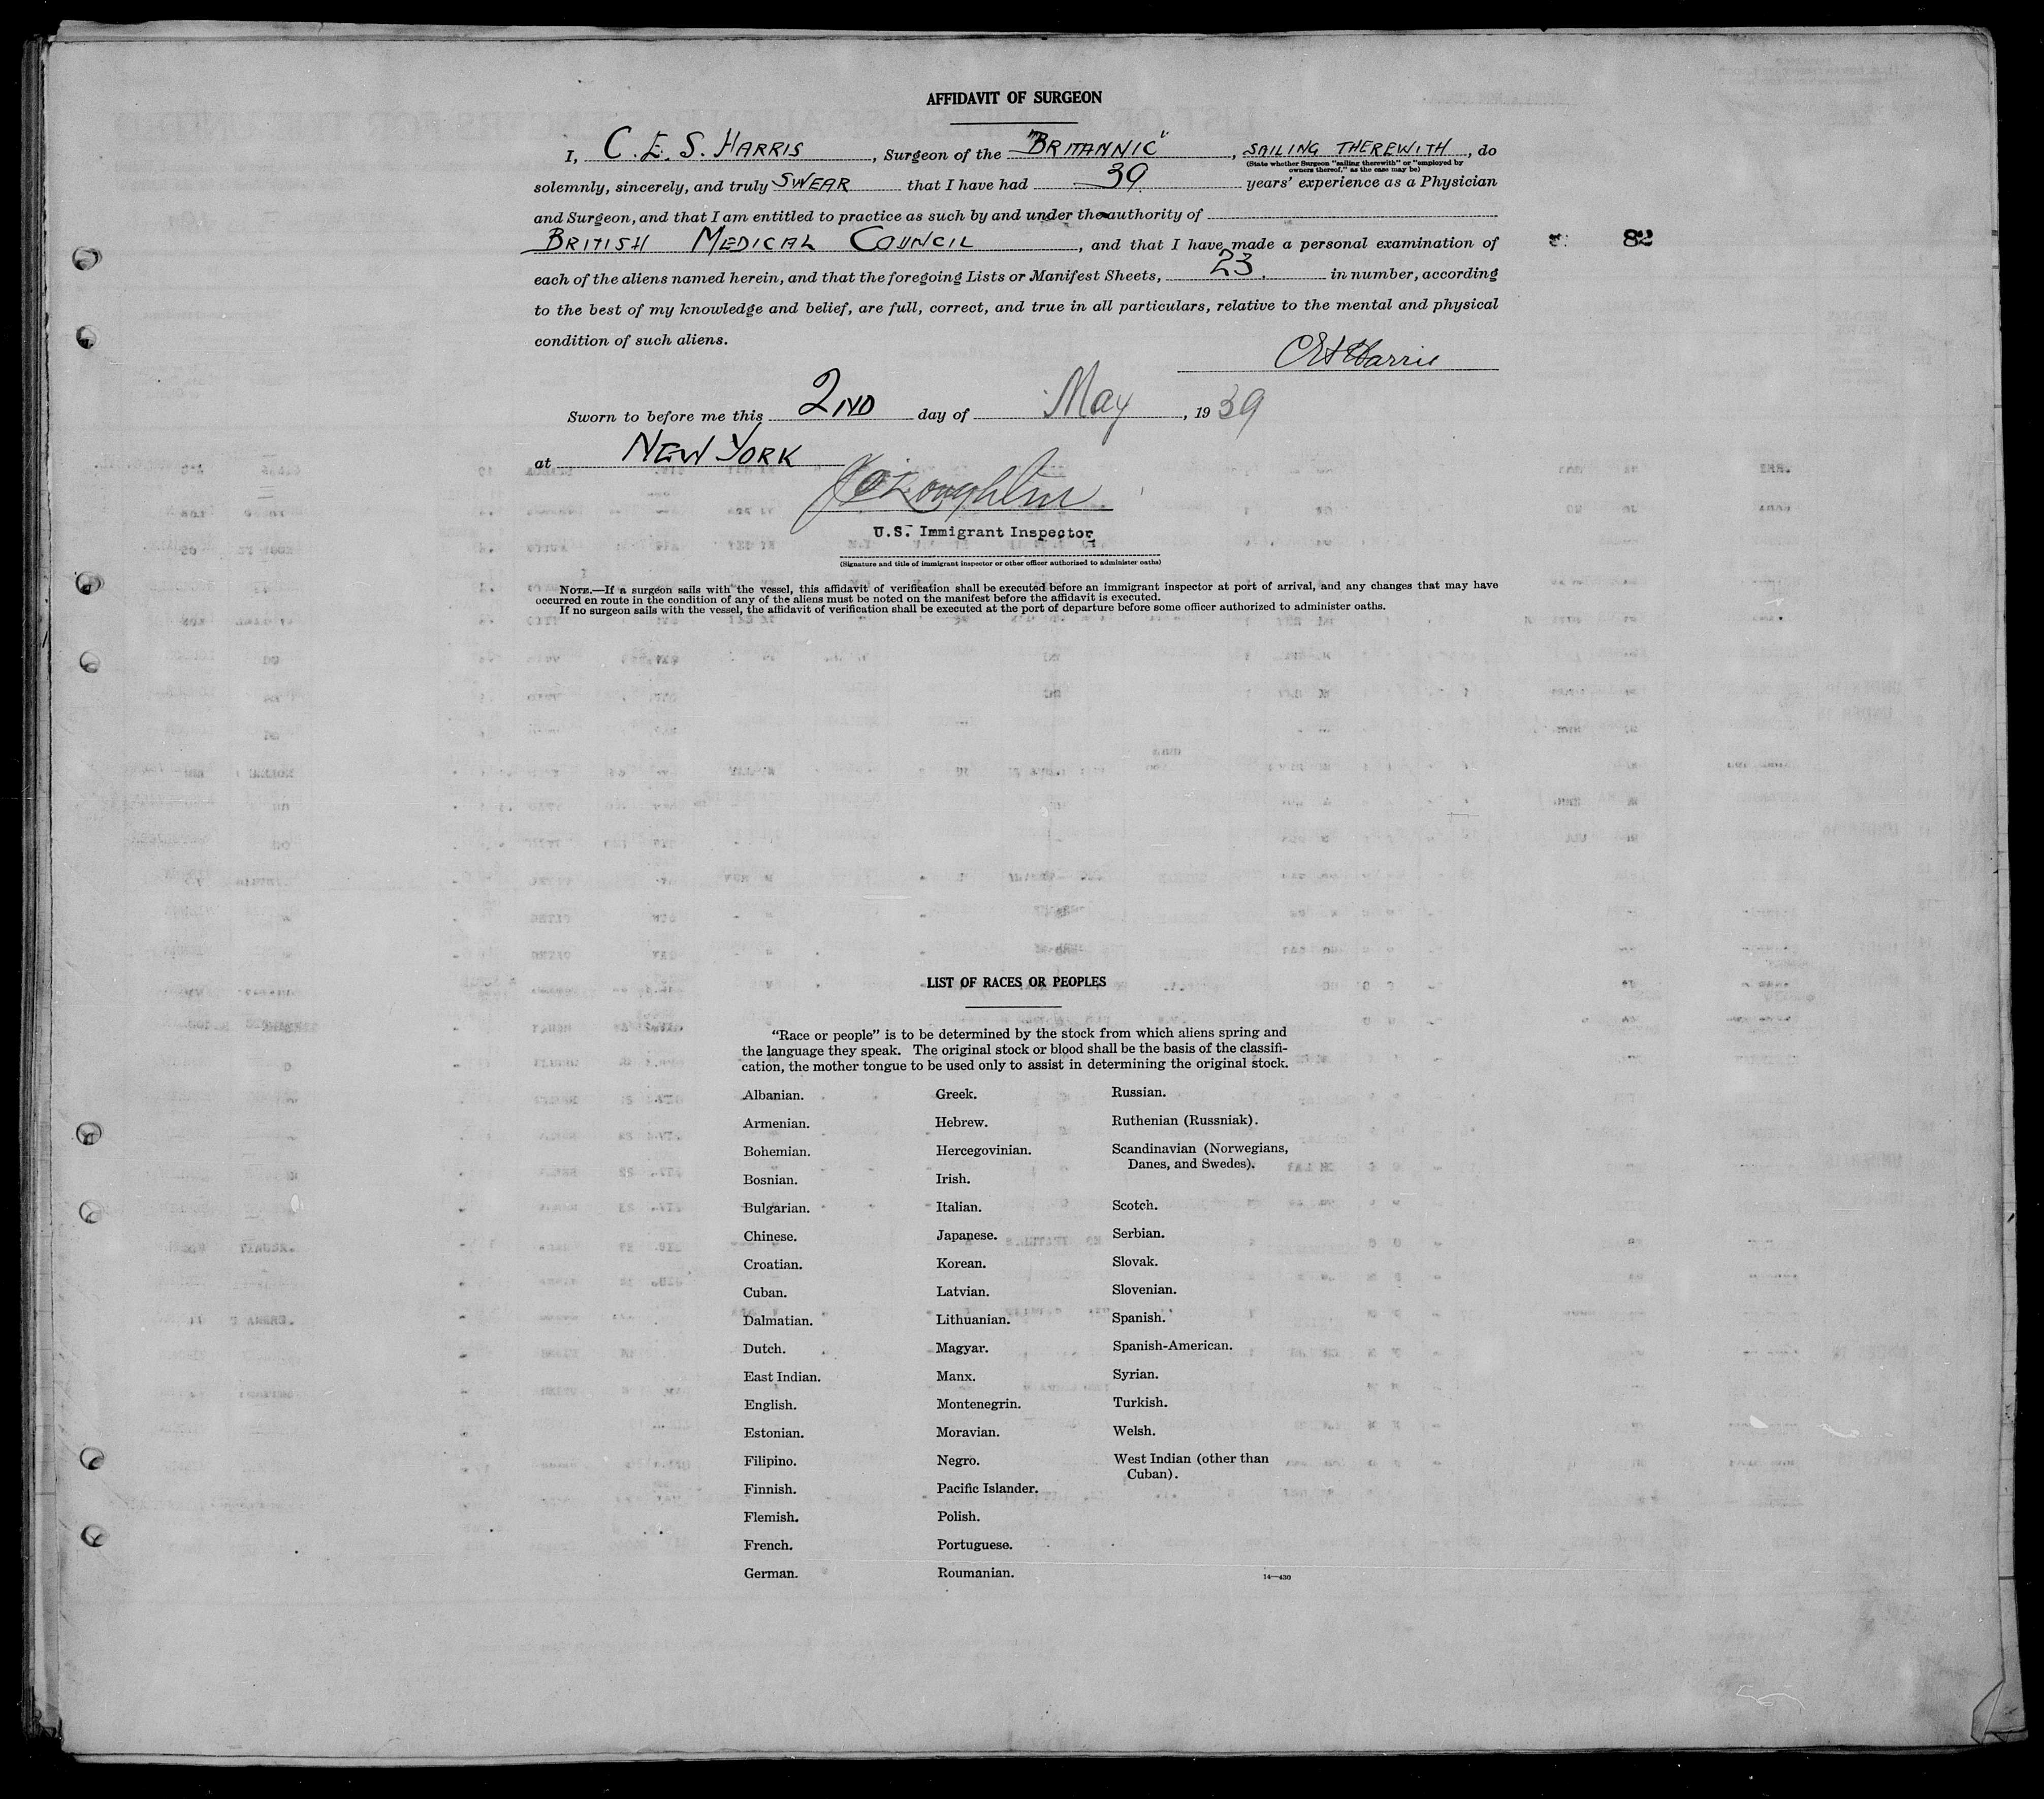 AFFIDAVIT OF SURGEON
I, C. E. S. HARRIS, Surgeon of the "BRITANNIC", SAILING THEREWITH, do
(State whether Surgeon "sailing therewith" or "employed by
owners thereof," as the case may be)
solemnly, sincerely, and truly SWEAR that I have had 39 years' experience as a Physician
and Surgeon, and that I am entitled to practice as such by and under the authority of
BRITISH MEDICAL COUNCIL, and that I have made a personal examination of
82
each of the aliens named herein, and that the foregoing Lists or Manifest Sheets, 23. in number, according
to the best of my knowledge and belief, are full, correct, and true in all particulars, relative to the mental and physical
condition of such aliens.
CES Harris
Sworn to before me this 2ND day of May, 1939
at NEW YORK
J O'Loughlin
U.S. Immigrant Inspector
(Signature and title of immigrant inspector or other officer authorized to administer oaths)
NOTE.—If a surgeon sails with the vessel, this affidavit of verification shall be executed before an immigrant inspector at port of arrival, and any changes that may have
occurred en route in the condition of any of the aliens must be noted on the manifest before the affidavit is executed.
If no surgeon sails with the vessel, the affidavit of verification shall be executed at the port of departure before some officer authorized to administer oaths.
LIST OF RACES OR PEOPLES
"Race or people" is to be determined by the stock from which aliens spring and
the language they speak. The original stock or blood shall be the basis of the classifi-
cation, the mother tongue to be used only to assist in determining the original stock.
Albanian.
Armenian.
Bohemian.
Bosnian.
Bulgarian.
Chinese.
Croatian.
Cuban.
Dalmatian.
Dutch.
East Indian.
English.
Estonian.
Filipino.
Finnish.
Flemish.
French.
German.
Greek.
Hebrew.
Hercegovinian.
Irish.
Italian.
Japanese.
Korean.
Latvian.
Lithuanian.
Magyar.
Manx.
Montenegrin.
Moravian.
Negro.
Pacific Islander.
Polish.
Portuguese.
Roumanian.
Russian.
Ruthenian (Russniak).
Scandinavian (Norwegians,
Danes, and Swedes).
Scotch.
Serbian.
Slovak.
Slovenian.
Spanish.
Spanish-American.
Syrian.
Turkish.
Welsh.
West Indian (other than
Cuban).
14—430